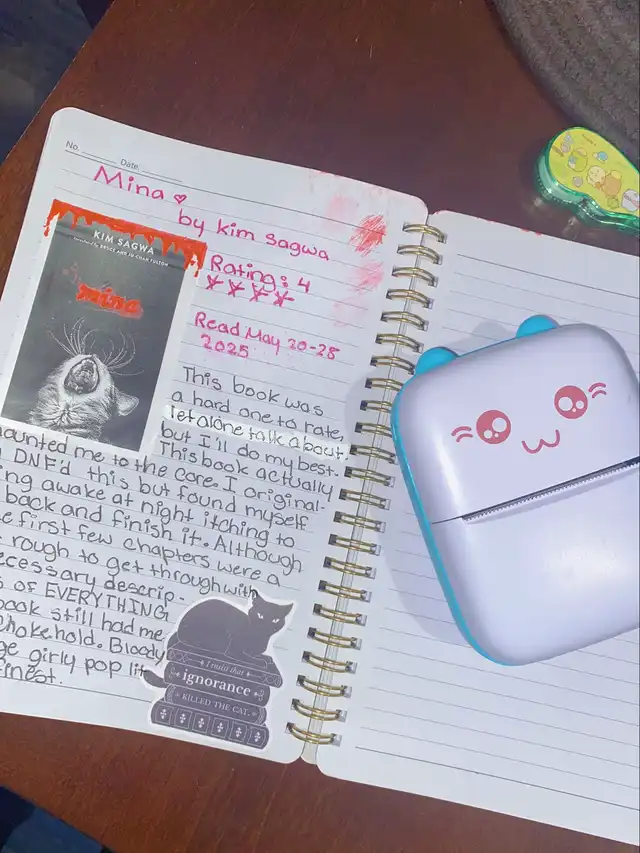 No. Date
Mina
by kim sagwa
KIM SAGWA
translated by BRUCE AND JU-CHAN FULTON
mina
Rating: 4
Read May 20-28
2025
This book was
a hard one to rate,
let alone talk about.
but I'll do my best.
This book actually
haunted me to the core. I original-
DNF'd this but found myself
ing awake at night itching to
back and finish it. Although
e first few chapters were a
rough to get through with
ecessary descrip-
s of EVERYTHING
book still had me
chokehold. Bloody
ge girly pop lit
finest.
I maintain that
ignorance
KILLED THE CAT.